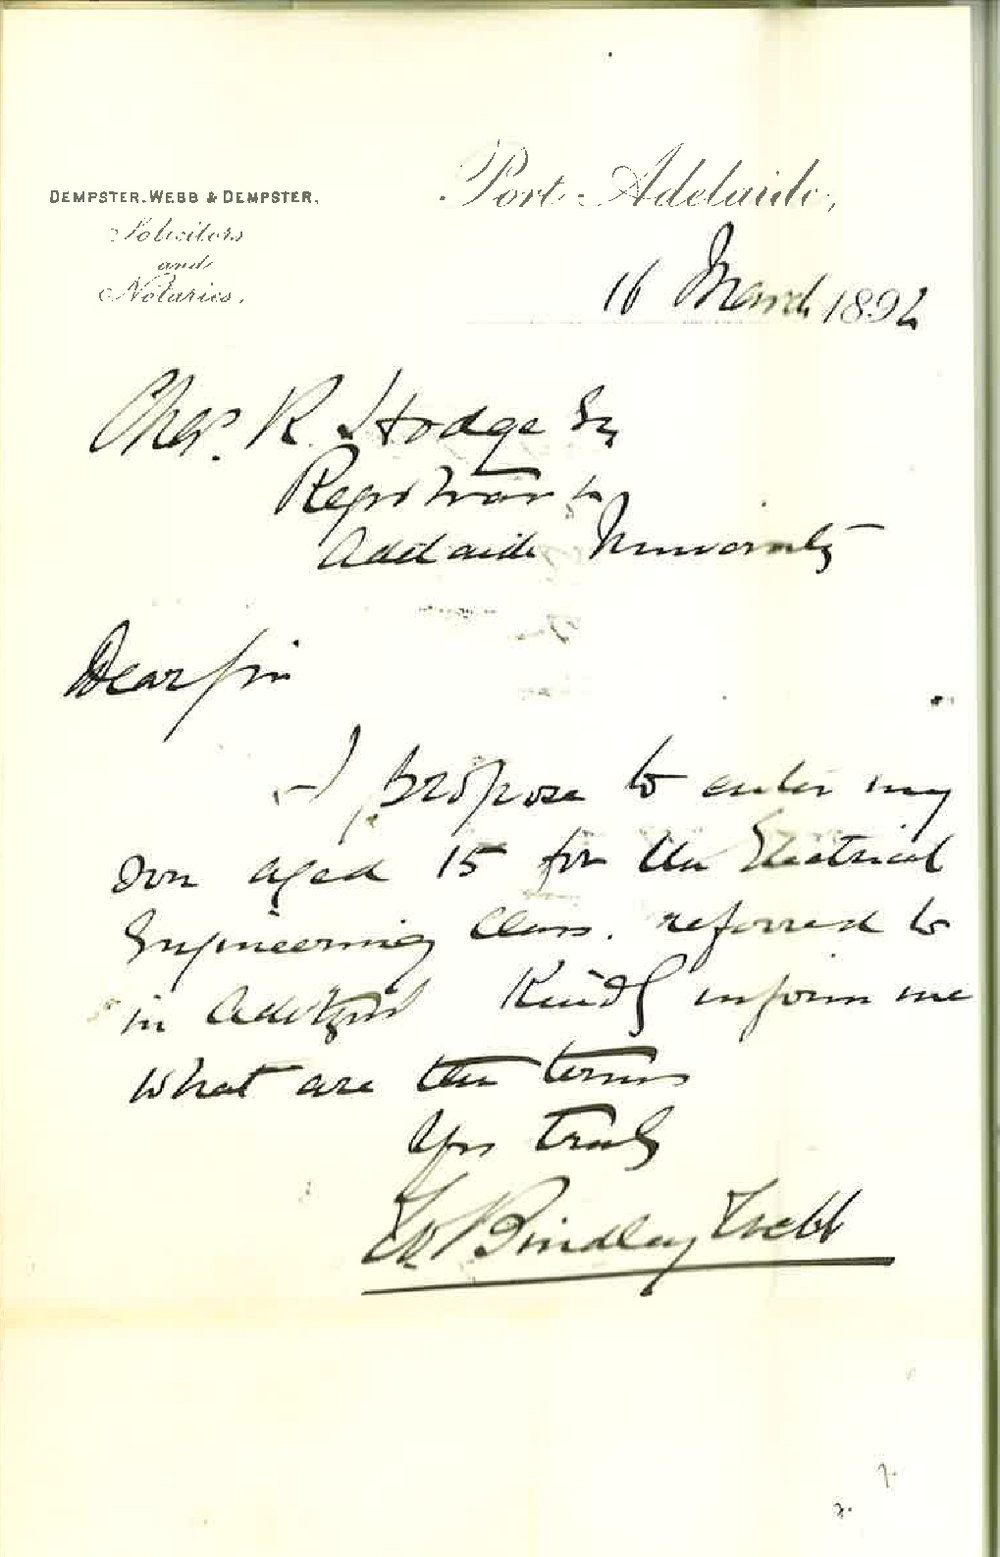 DEMPSTER, WEBB & DEMPSTER,
Solicitors
and
Notaries.
Port Adelaide,
16 March 1892
Chas. R. Hodge Esq
Registrar
Adelaide University
Dear Sir
I propose to enter my
son aged 15 for the Electrical
Engineering Class. referred to
in Kindly inform me
what are the terms
Yrs truly
Brindley Webb